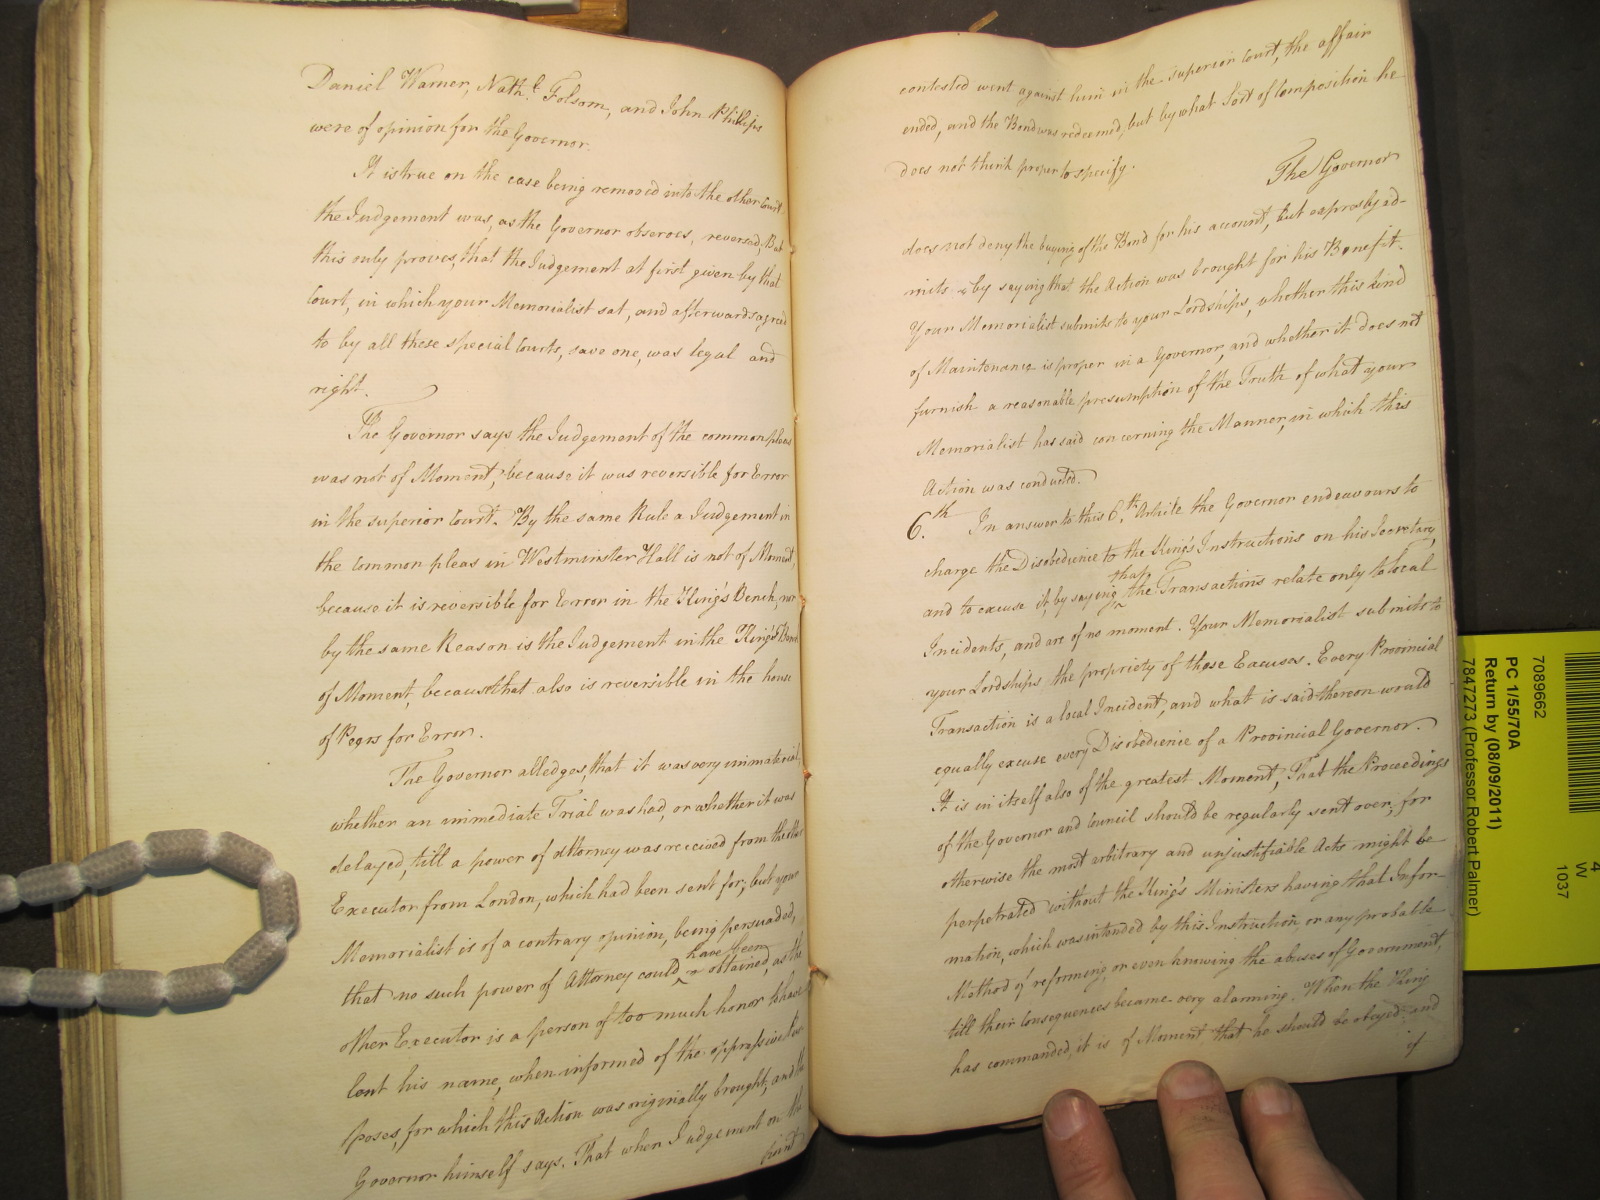 Daniel Warner, Nath.l Folsom, and John Phillips
were of opinion for the Governor.
It is true on the case being removed into the other Court
the Judgement was, as the Governor observes, reversed, But
this only proves, that the Judgement at first given by that
Court, in which your Memorialist sat, and afterwards agreed
to by all these special Courts, save one, was legal and
right.
The Governor says the Judgement of the common pleas
was not of Moment, because it was reversible for Error
in the superior Court. By the same Rule a Judgement in
the Common pleas in Westminster Hall is not of Moment,
because it is reversible for Error in the King's Bench, nor
by the same Reason is the Judgement in the King's Bench
of Moment, because that also is reversible in the house
of Peers for Error.
The Governor alledges, that it was very immaterial,
whether an immediate Trial was had, or whether it was
delayed, till a power of attorney was received from the other
Executor from London, which had been sent for; but your
Memorialist is of a contrary opinion, being persuaded,
that no such power of Attorney could have been obtained, as the
other Executor is a person of too much honor to have
lent his name, when informed of the oppressive
poses, for which this Action was originally brought, and the
Governor himself says, That when Judgement on the
contested went against him in the superior Court, the affair
ended, and the Bond was redeemed, but by what Sort of Composition he
does not think proper to specify.
The Governor
does not deny the buying of the Bond for his account, but expressly ad-
mits it by saying that the Action was brought for his Benefit.
Your Memorialist submits to your Lordships, whether this kind
of Maintenance is proper in a Governor, and whether it does not
furnish a reasonable presumption of the Truth of what your
Memorialist has said concerning the Manner, in which this
Action was conducted.
6.th In answer to this 6.th Article the Governor endeavours to
charge the Disobedience to the King's Instructions on his Secretary,
and to excuse it, by saying that the Transactions relate only to local
Incidents, and are of no moment. Your Memorialist submits to
your Lordships the propriety of those Excuses. Every Provincial
Transaction is a local Incident, and what is said thereon would
equally excuse every Disobedience of a Provincial Governor.
It is in itself also of the greatest Moment, That the Proceedings
of the Governor and Council should be regularly sent over; for
otherwise the most arbitrary and unjustifiable Acts might be
perpetrated without the King's Ministers having that Infor-
mation, which was intended by this Instruction, or any probable
Method of reforming, or even knowing the abuses of Government,
till their Consequences became very alarming. When the King
has commanded, it is of Moment that he should be obeyed; and
if
7089662
PC 1/55/70A
Return by (08/09/2011)
7847273 (Professor Robert Palmer)
4
W
1037